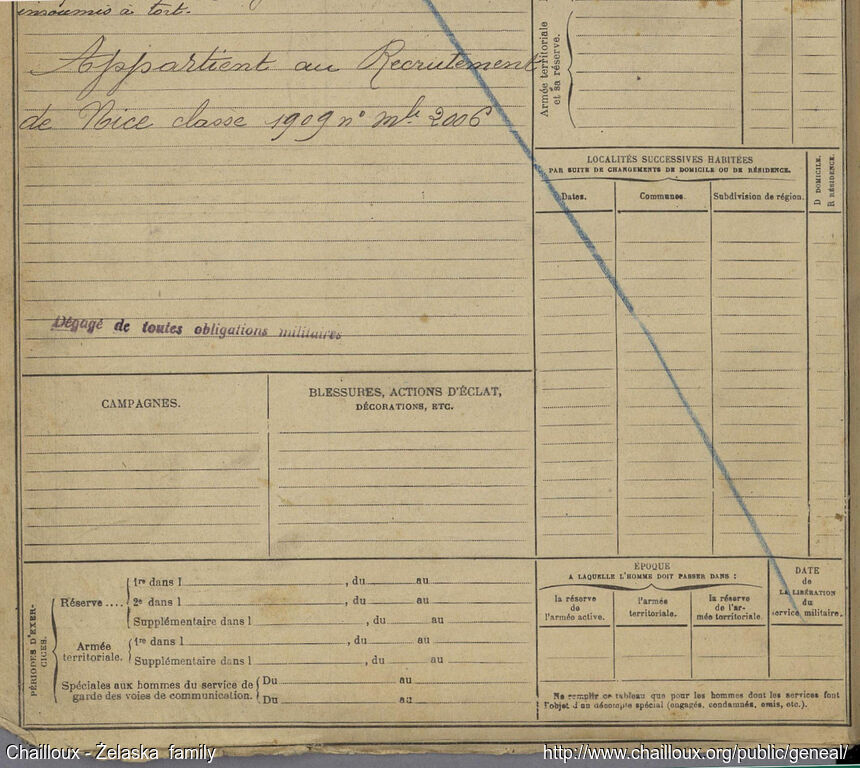 insoumis à tort.
Appartient au Recrutement
de Nice classe 1909 n° mle 2006
Dégagé de toutes obligations militaires
CAMPAGNES.
BLESSURES, ACTIONS D'ÉCLAT,
DÉCORATIONS, ETC.
PÉRIODES D'EXER-
CICES.
Réserve ....
1re dans l , du au
2e dans l , du au
Supplémentaire dans l , du au
Armée
territoriale.
1re dans l , du au
Supplémentaire dans l , du au
Spéciales aux hommes du service de
garde des voies de communication.
Du au
Du au
Armée territoriale
et sa réserve.
LOCALITÉS SUCCESSIVES HABITÉES
PAR SUITE DE CHANGEMENTS DE DOMICILE OU DE RÉSIDENCE.
Dates.
Communes.
Subdivision de région.
D DOMICILE.
R RÉSIDENCE.
ÉPOQUE
A LAQUELLE L'HOMME DOIT PASSER DANS :
la réserve
de
l'armée active.
l'armée
territoriale.
la réserve
de l'ar-
mée territoriale.
DATE
de
LA LIBÉRATION
du
service militaire.
Ne remplir ce tableau que pour les hommes dont les services font
l'objet d'un décompte spécial (engagés, condamnés, omis, etc.).
Chailloux - Żelaska family
http://www.chailloux.org/public/geneal/